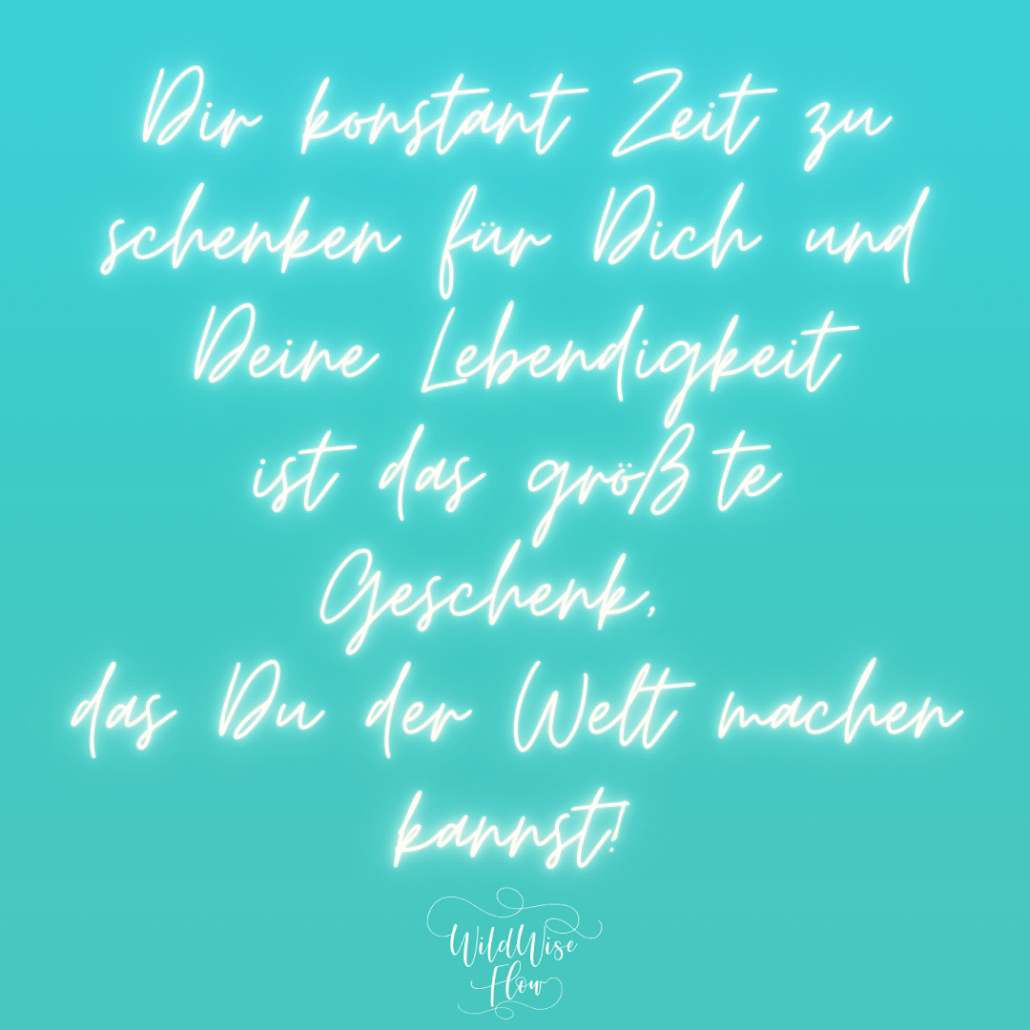 Dir konstant Zeit zu
schenken für Dich und
Deine Lebendigkeit
ist das größte
Geschenk,
das Du der Welt machen
kannst!
WildWise
Flow